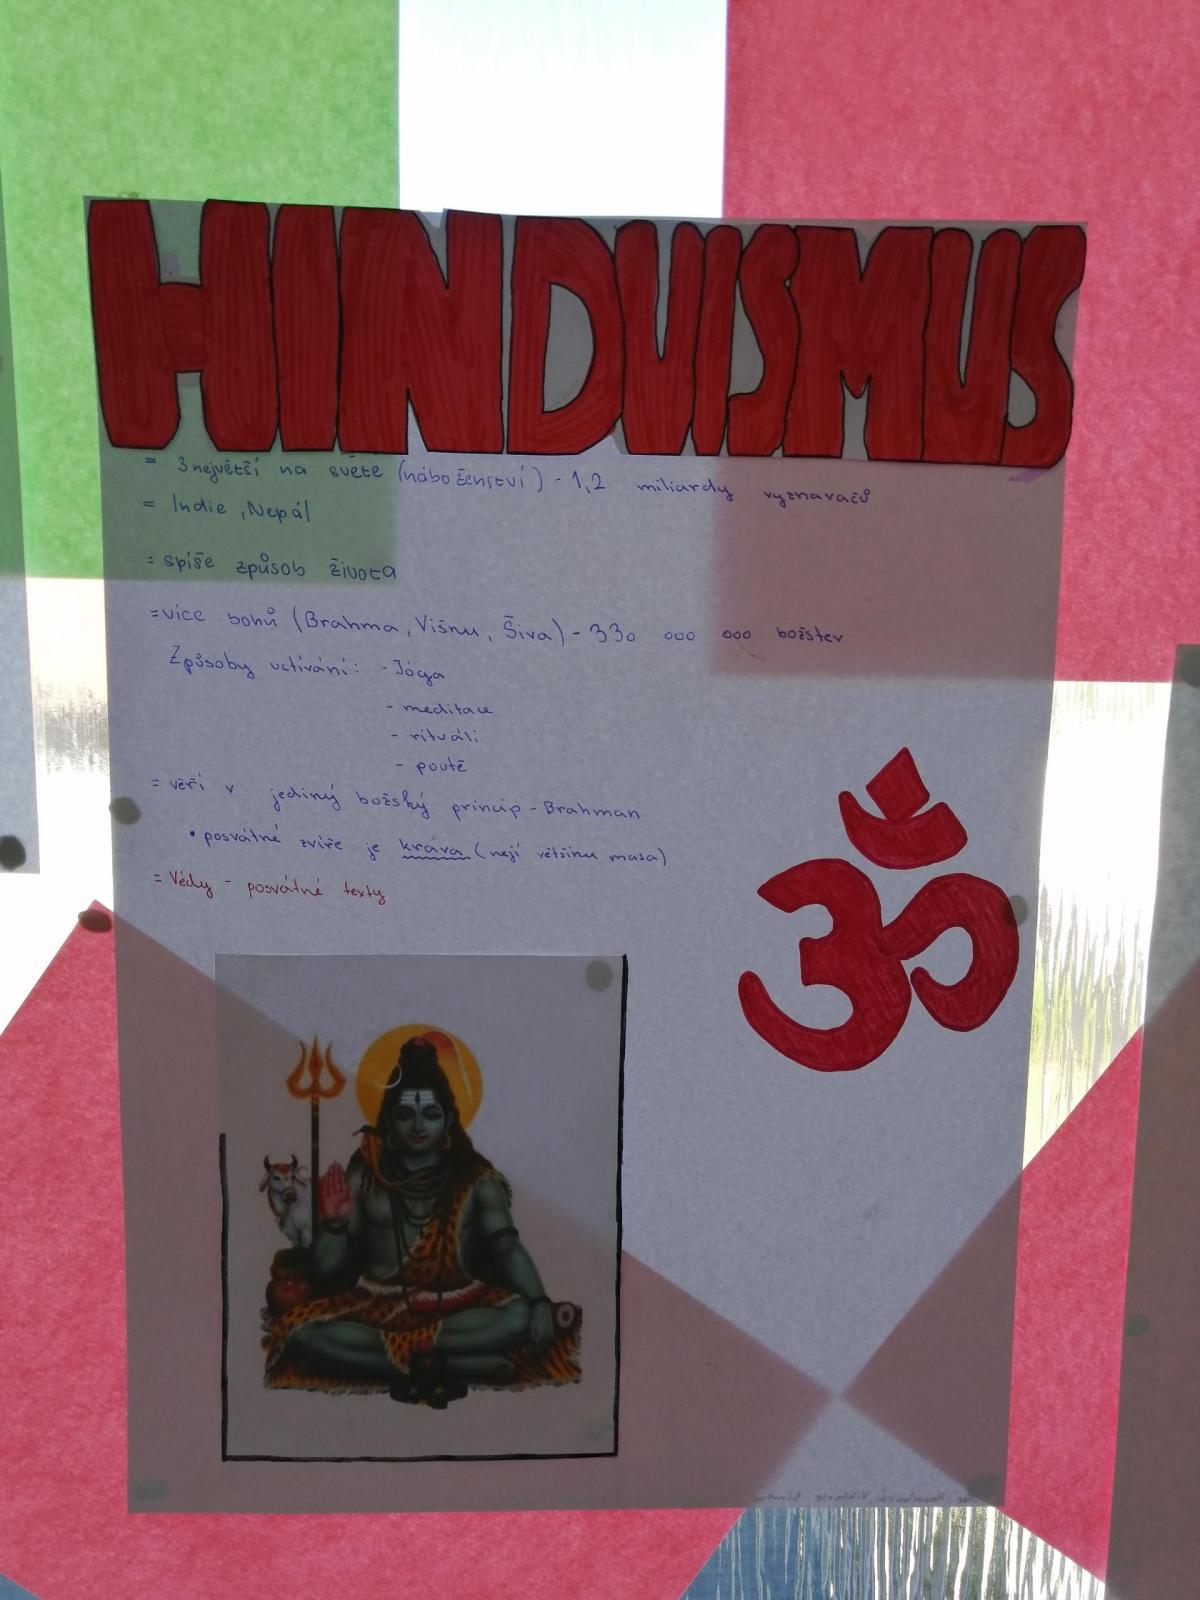 HINDUISMUS
= 3 největší na světe (náboženství) - 1,2 miliardy vyznavačů
= Indie, Nepál
= spíše způsob života
= více bohů (Brahma, Višnu, Šiva) - 330 000 000 božstev
Způsoby uctívání: - Jóga
- meditace
- rituáli
- poutě
= věří v jediný božský princip - Brahman
• posvátné zvíře je kráva (nejí většinu masa)
= Védy - posvátné texty